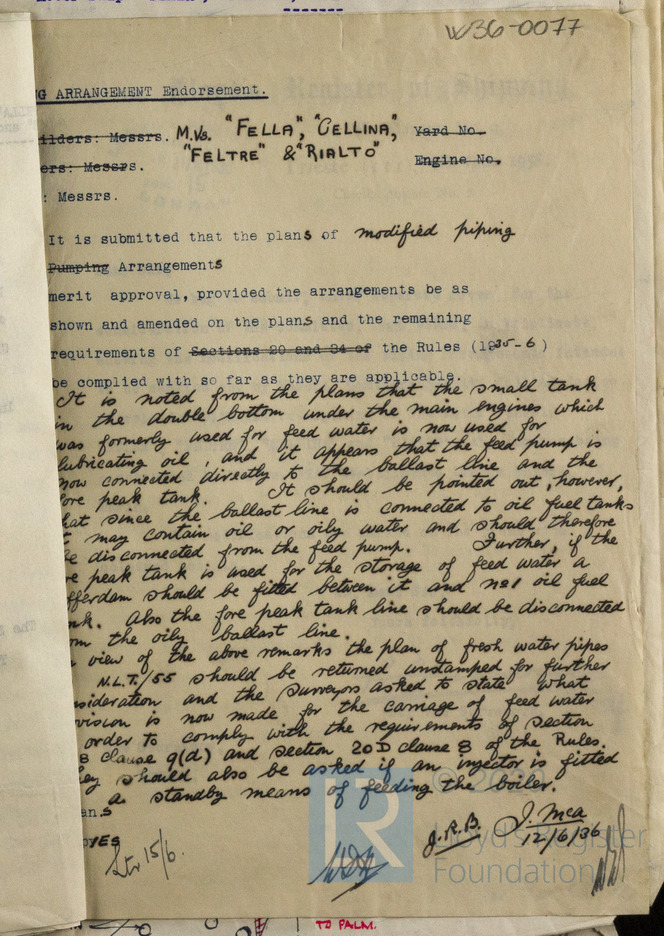 W36-0077
G ARRANGEMENT Endorsement.
ilders: Messrs. M.Vs. "FELLA", "CELLINA", Yard No.
ers: Messrs. "FELTRE" & "RIALTO" Engine No.
: Messrs.
It is submitted that the plans of modified piping
Pumping Arrangements
merit approval, provided the arrangements be as
shown and amended on the plans and the remaining
requirements of Sections 20 and 34 of the Rules (1935-6)
be complied with so far as they are applicable.
It is noted from the plans that the small tank
in the double bottom under the main engines which
was formerly used for feed water is now used for
lubricating oil, and it appears that the feed pump is
now connected directly to the ballast line and the
fore peak tank. It should be pointed out, however,
hat since the ballast line is connected to oil fuel tanks
t may contain oil or oily water and should therefore
be disconnected from the feed pump. Further, if the
re peak tank is used for the storage of feed water a
fferdam should be fitted between it and No1 oil fuel
nk. Also the fore peak tank line should be disconnected
om the oily ballast line.
n view of the above remarks the plan of fresh water pipes
N.L.T./55 should be returned unstamped for further
nsideration and the Surveyors asked to state what
vision is now made for the carriage of feed water
order to comply with the requirements of section
8 clause 9(d) and section 20D clause 8 of the Rules.
ey should also be asked if an injector is fitted
a standby means of feeding the boiler.
ans
YES
15/6.
J.R.B.
J. McA
12/6/36
Lloyd's Register
Foundation
TO PALM.